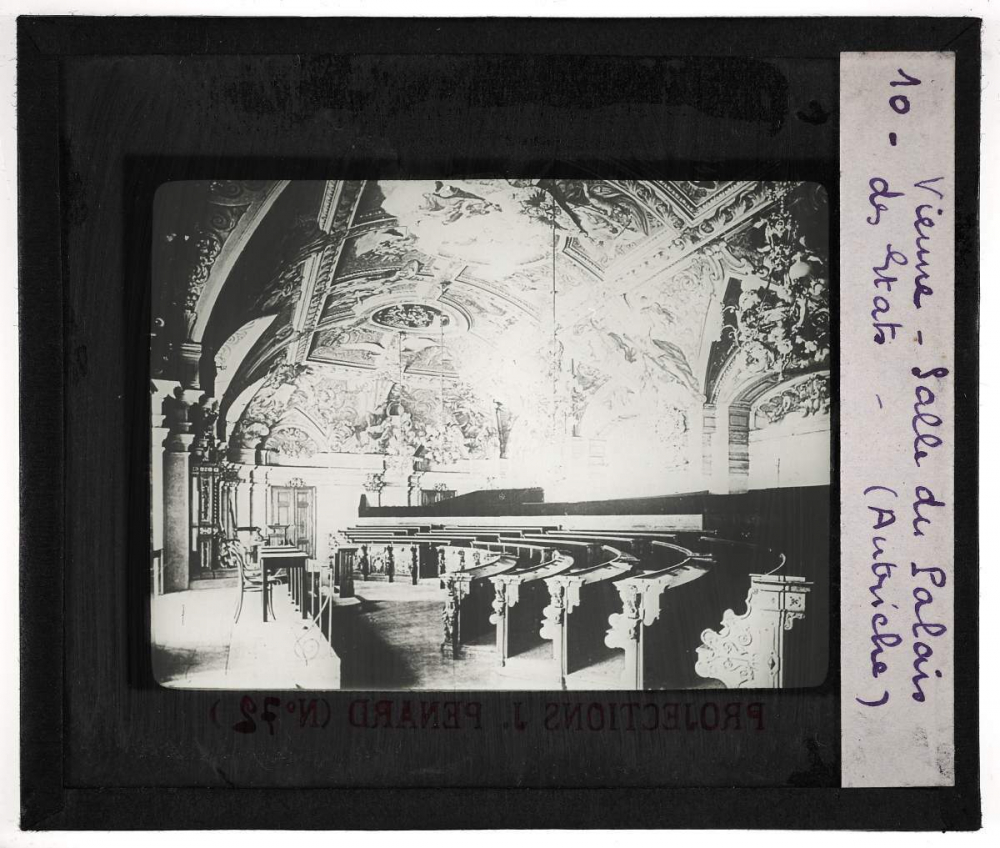 10 - Vienne - Salle du Palais
des Etats - (Autriche)
PROJECTIONS J. PENARD (N° 72)